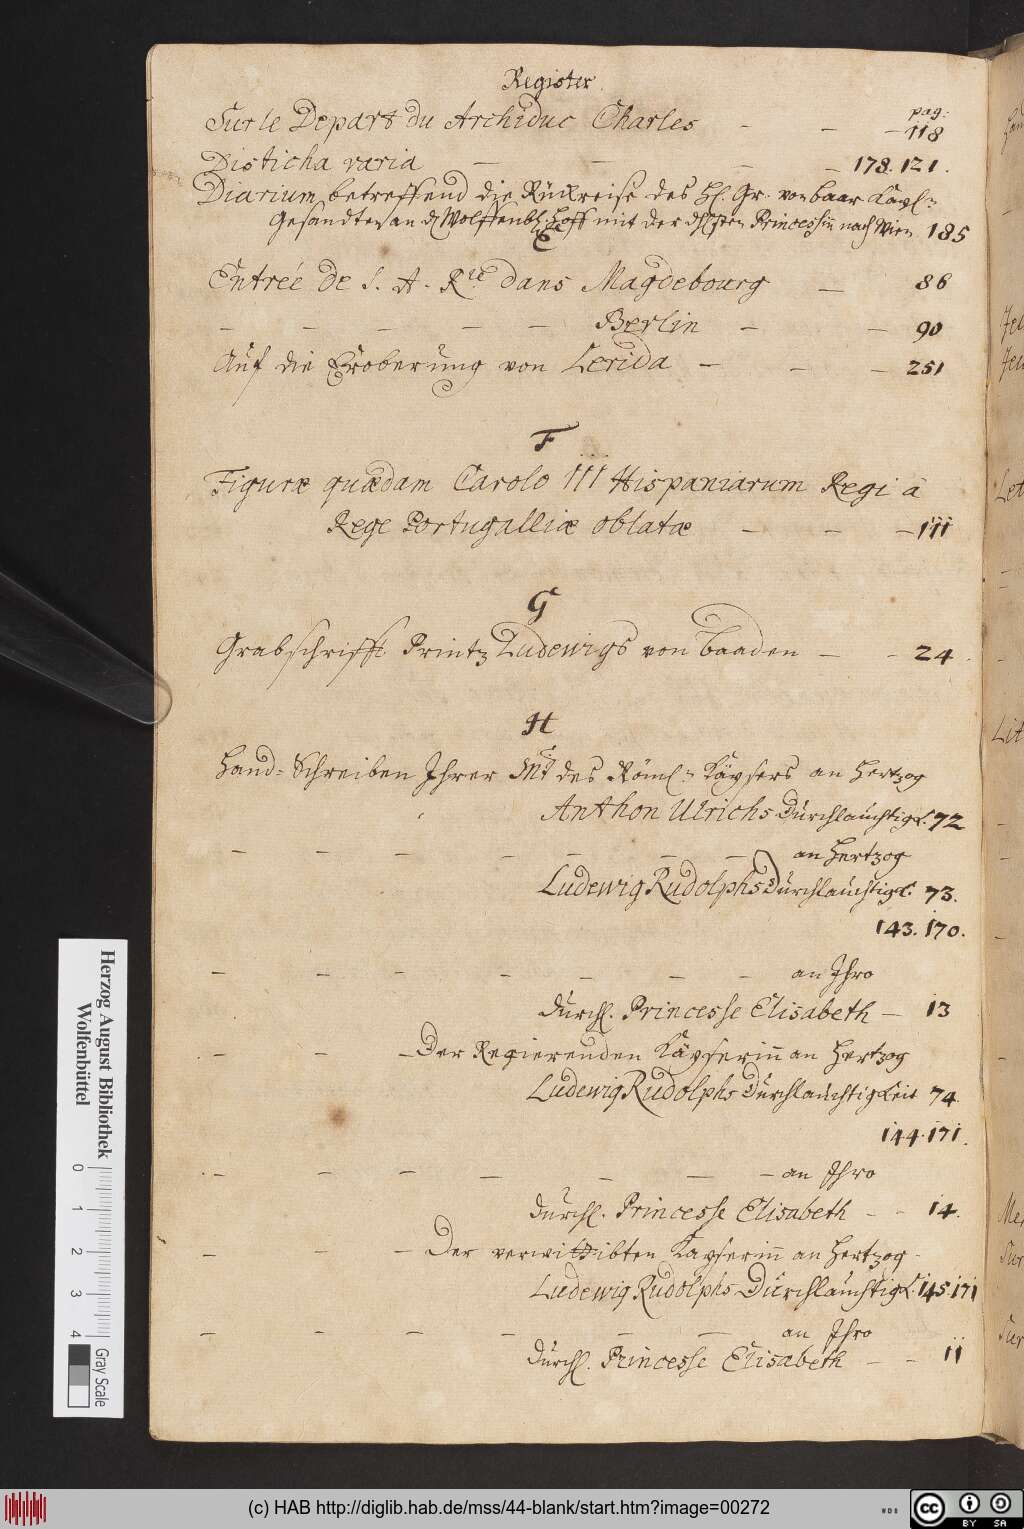 Register
pag:
Sur le Depart du Archiduc Charles - - - 118
Disticha varia - - - - 178. 121.
Diarium betreffend die Rükreise des H. Gr. von Baar Kayl:
Gesandten an d Wolffenb. Hoff mit der Princessin nach Wien 185
E
Entrée de S. A. Rle dans Magdebourg - 86
- - - - - Berlin - - 90
Auf die Eroberung von Lerida - - - 251
F
Figuræ quædam Carolo III Hispaniarum Regi â
Rege Portugalliæ oblatæ - - - 111
G
Grabschrifft Printz Ludewigs von Baaden - - 24.
H
Hand-Schreiben Ihrer Mt des Röml: Käysers an Hertzog
Anthon Ulrichs Durchlauchtigk. 72
- - - - - - - an Hertzog
Ludewig Rudolphs Durchlauchtigk. 73.
143. 170.
- - - - - - - an Ihro
Durchl. Princesse Elisabeth - 13
- - - Der Regierenden Käyserin an Hertzog
Ludewig Rudolphs Durchlauchtigkeit 74.
144. 171.
- - - - - - - an Ihro
Durchl. Princesse Elisabeth - - 14.
- - - Der verwittibten Kayserin an Hertzog
Ludewig Rudolphs Durchlauchtigk. 145. 171
- - - - - - an Ihro
Durchl. Princesse Elisabeth - - 11
Herzog August Bibliothek
Wolfenbüttel
0 1 2 3 4
Gray Scale
(c) HAB http://diglib.hab.de/mss/44-blank/start.htm?image=00272
WDB
cc BY SA